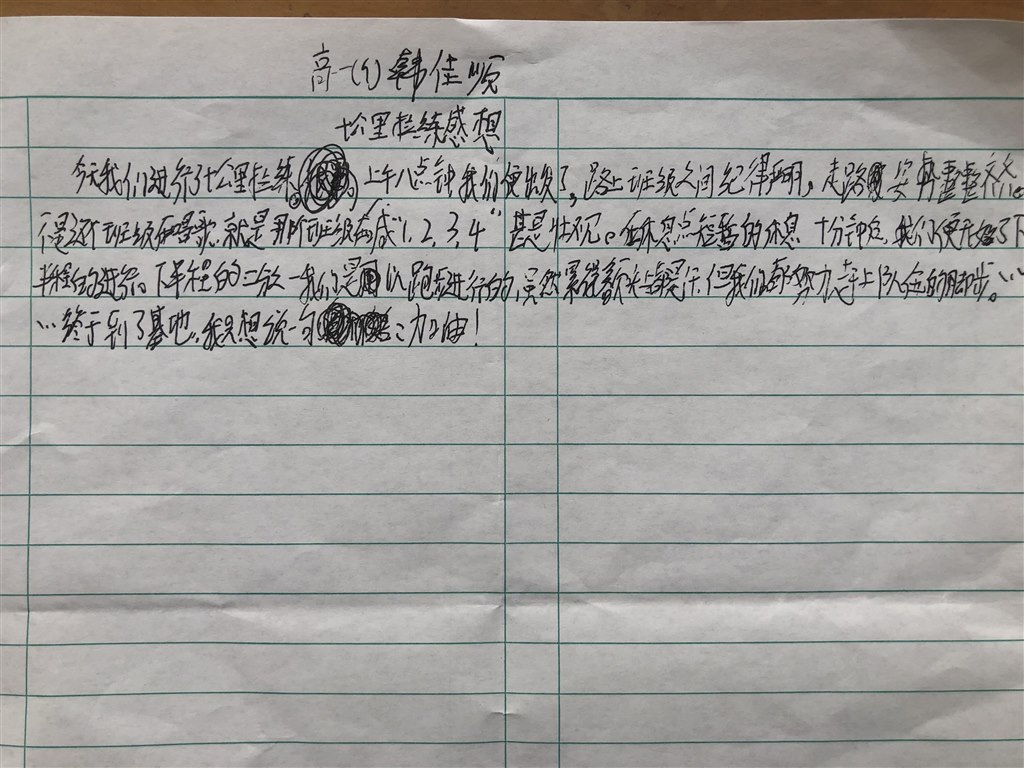 高一(1)韩佳顺
十公里拉练感想
今天我们进行了十公里拉练。上午八点钟我们便出发了，路上班级之间纪律严明，走路姿势
不是这个班级在唱歌，就是那个班级在喊“1，2，3，4”甚是壮观。在休息点短暂的休息十分钟后，我们便开始了下
半程的进行。下半程的二分之一我们是以跑步进行的，虽然累得额头上都是汗，但我们都努力跟上队伍的脚步。……
……终于到了基地，我只想说一句：加油！